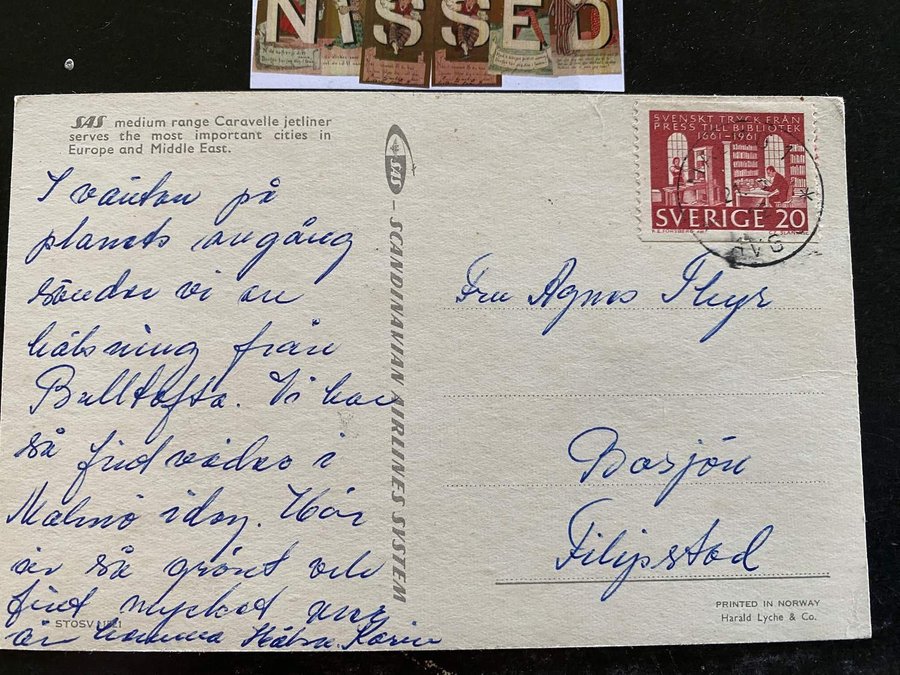 NISSED
SAS medium range Caravelle jetliner
serves the most important cities in
Europe and Middle East.
I väntan på
planets avgång
sänder vi en
hälsning från
Bulltofta. Vi har
så fint väder i
Malmö idag. Här
är så grönt och
fint mycket mer
än hemma Hälsn. Karin
STOSV
SAS – SCANDINAVIAN AIRLINES SYSTEM
SVENSKT TRYCK FRÅN
PRESS TILL BIBLIOTEK
1661–1961
SVERIGE 20
Fru Agnes Thyr
Bosjön
Filipstad
PRINTED IN NORWAY
Harald Lyche & Co.